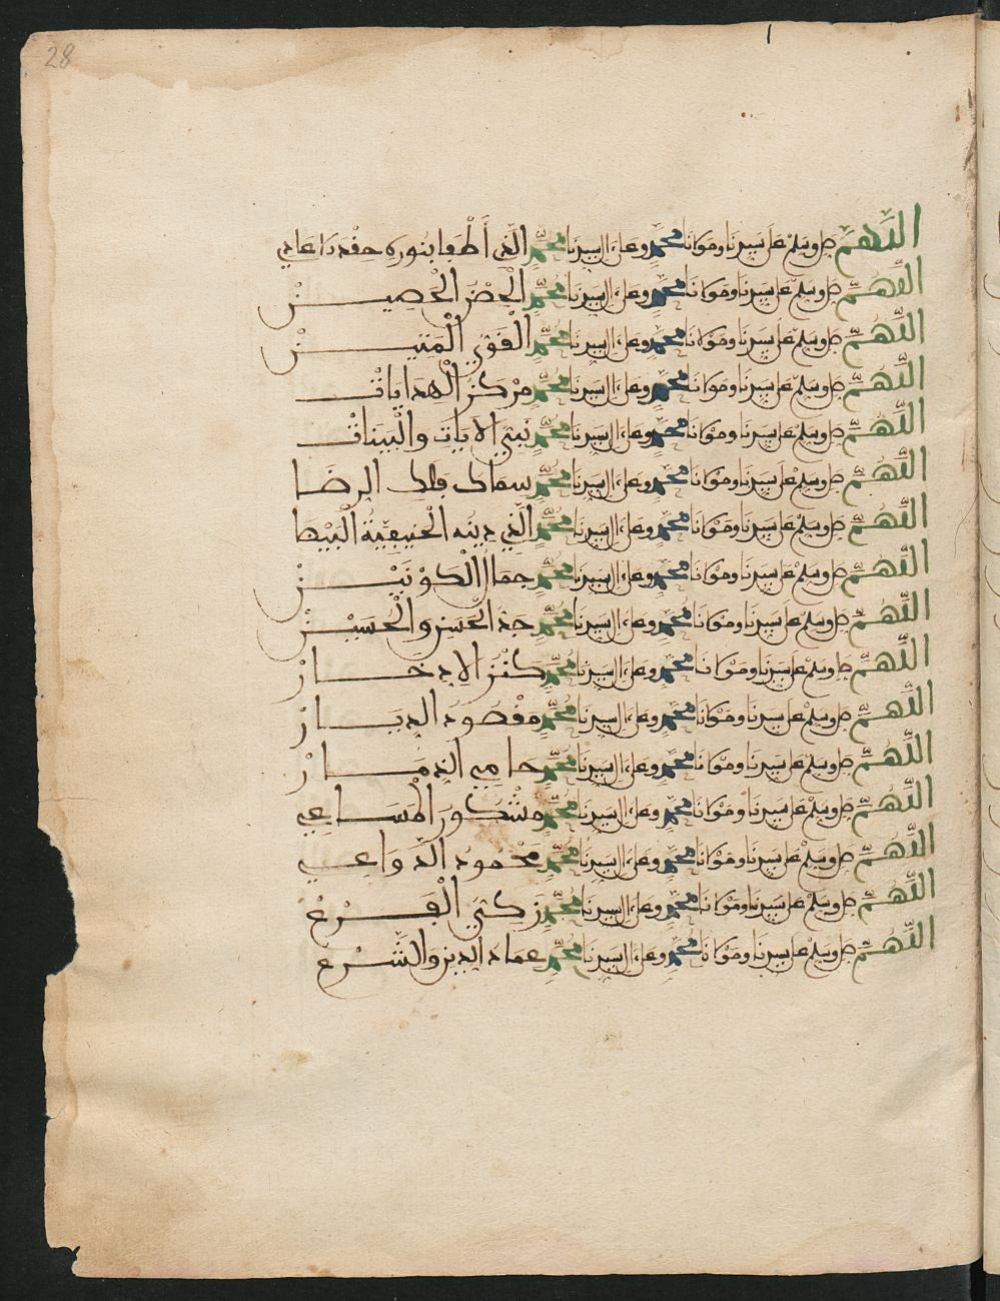 28
اللهم صل وسلم على سيدنا ومولانا محمد وعلى ءال سيدنا محمد الذي أطفا بنوره
اللهم صل وسلم على سيدنا ومولانا محمد وعلى ءال سيدنا محمد الحصن الحصين
اللهم صل وسلم على سيدنا ومولانا محمد وعلى ءال سيدنا محمد القوي المتين
اللهم صل وسلم على سيدنا ومولانا محمد وعلى ءال سيدنا محمد مركز الهدايات
اللهم صل وسلم على سيدنا ومولانا محمد وعلى ءال سيدنا محمد نبي الايات والبينات
اللهم صل وسلم على سيدنا ومولانا محمد وعلى ءال سيدنا محمد سماك فلك الرضا
اللهم صل وسلم على سيدنا ومولانا محمد وعلى ءال سيدنا محمد الذي دينه الحنيفية البيضا
اللهم صل وسلم على سيدنا ومولانا محمد وعلى ءال سيدنا محمد جمال الكونين
اللهم صل وسلم على سيدنا ومولانا محمد وعلى ءال سيدنا محمد جد الحسن والحسين
اللهم صل وسلم على سيدنا ومولانا محمد وعلى ءال سيدنا محمد كنز الادخار
اللهم صل وسلم على سيدنا ومولانا محمد وعلى ءال سيدنا محمد مقصود الديار
اللهم صل وسلم على سيدنا ومولانا محمد وعلى ءال سيدنا محمد حامي الذمار
اللهم صل وسلم على سيدنا ومولانا محمد وعلى ءال سيدنا محمد مشكور المساعي
اللهم صل وسلم على سيدنا ومولانا محمد وعلى ءال سيدنا محمد محمود الدواعي
اللهم صل وسلم على سيدنا ومولانا محمد وعلى ءال سيدنا محمد زكي الفرع
اللهم صل وسلم على سيدنا ومولانا محمد وعلى ءال سيدنا محمد عماد الدين والشرع